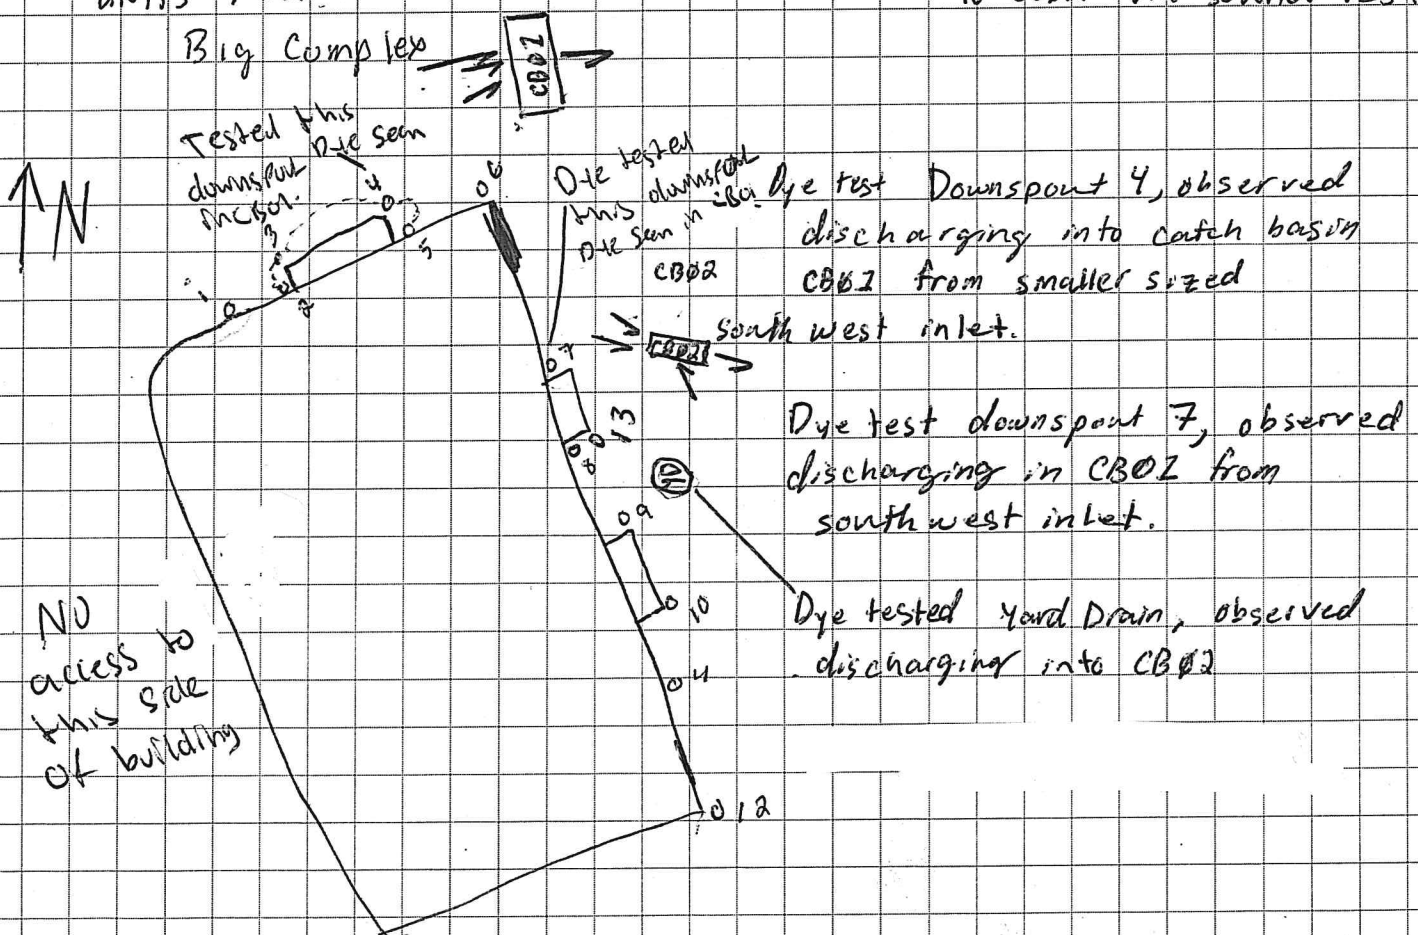 Big Complex
CB01
Tested this
downspout Dye seen
in CB01.
N
Dye tested
this downspout
Dye seen in CB01
CB02
CB02
Dye test Downspout 4, observed
discharging into catch basin
CB01 from smaller sized
south west inlet.
Dye test downspout 7, observed
discharging in CB01 from
southwest inlet.
Dye tested Yard Drain, observed
discharging into CB02
NO
access to
this side
of building
1
2
3
4
5
6
7
8
13
9
10
11
12